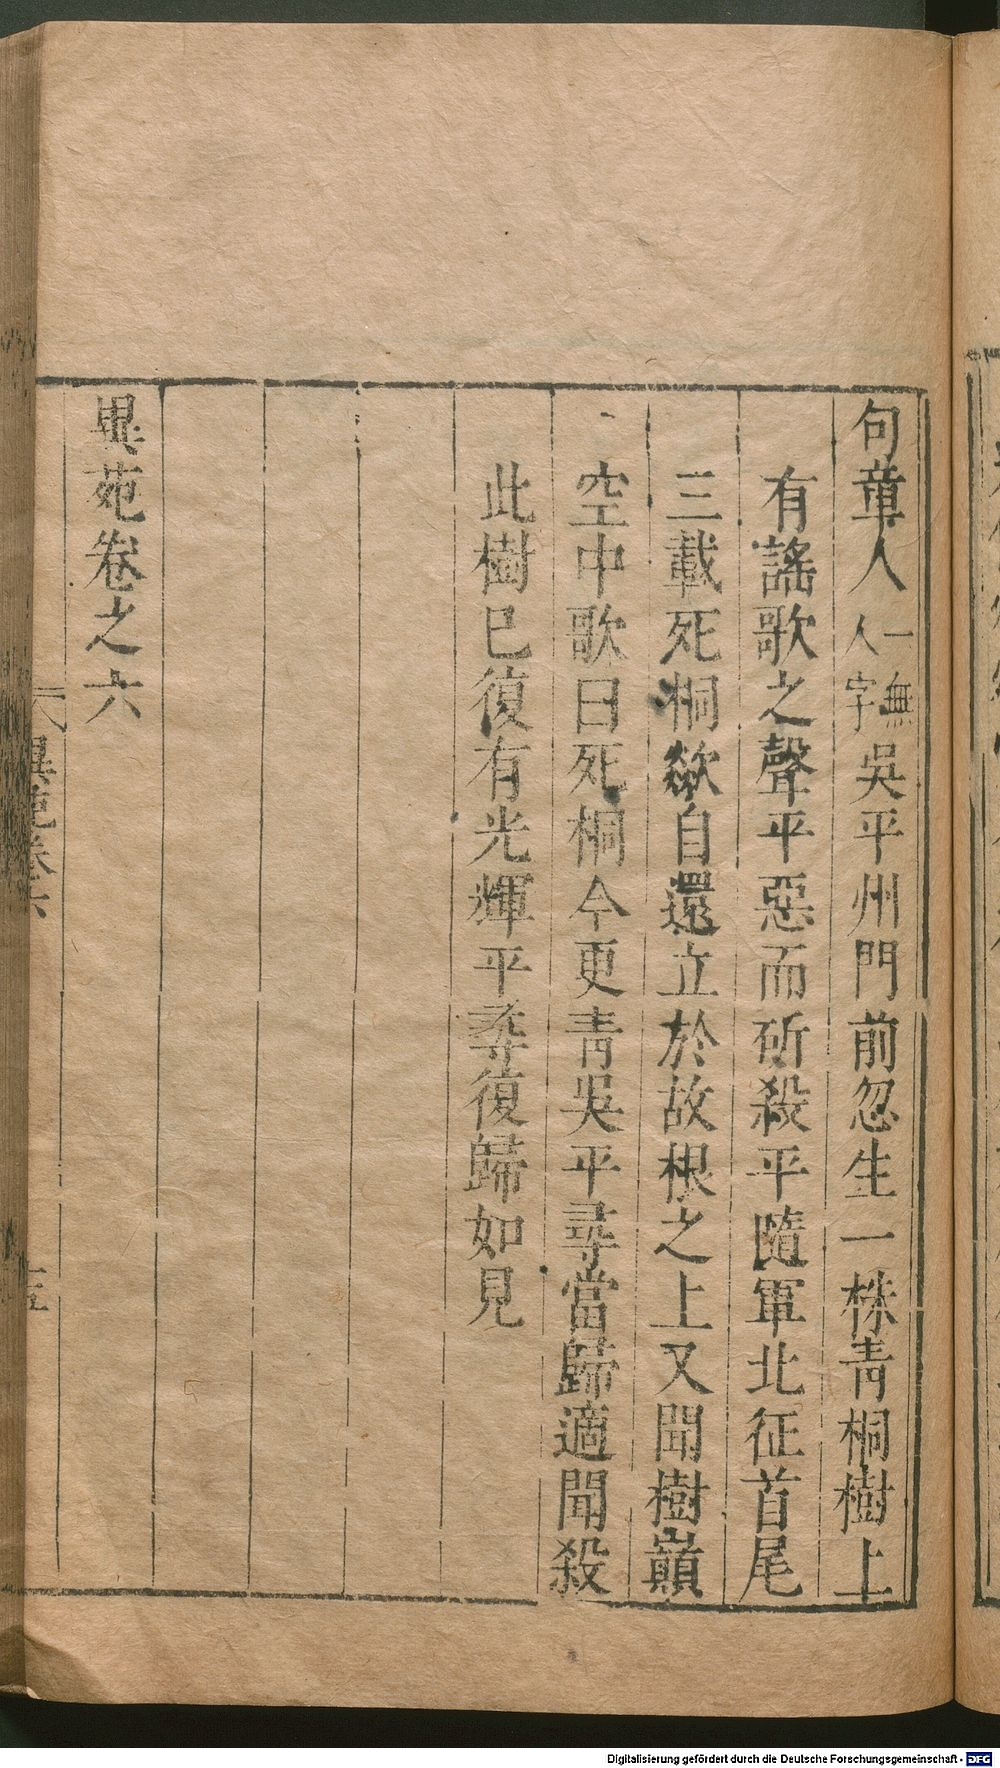 句章人一無人字吳平州門前忽生一株青桐樹上
有謠歌之聲平惡而斫殺平隨軍北征首尾
三載死桐欻自還立於故根之上又聞樹巔
空中歌曰死桐今更青吳平尋當歸適聞殺
此樹已復有光輝平尋復歸如見
異苑卷之六
異苑卷六
Digitalisierung gefördert durch die Deutsche Forschungsgemeinschaft - DFG